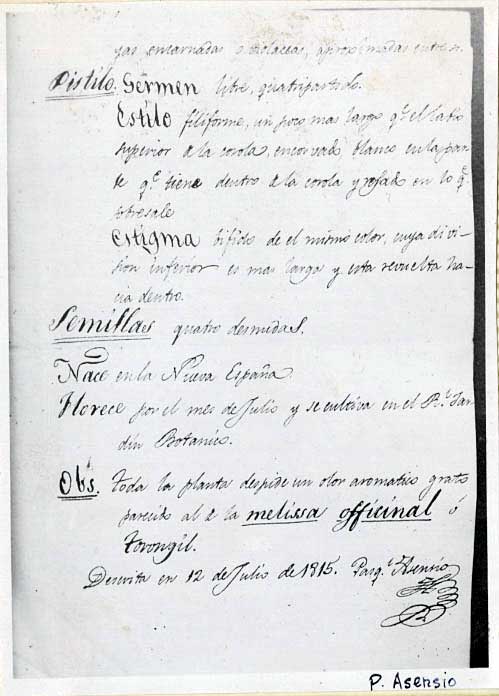 yas encarnadas o violaceas, aproximadas entre si.
Pistilo. Germen libre, quatripartido.
Estilo filiforme, un poco mas largo q.e el labio
superior de la corola, encorvado, blanco en la par-
te q.e tiene dentro de la corola y rosado en lo q.e
sobresale
Estigma bifido de el mismo color, cuya divi-
sion inferior es mas larga y esta revuelta ha-
cia dentro.
Semillas quatro desnudas.
Nace en la Nueva España.
Florece por el mes de Julio y se cultiva en el R.l Jar
din Botanico.
Obs. toda la planta despide un olor aromatico grato
parecido al de la melissa officinal ó
torongil.
Descrita en 12 de Julio de 1815. Pasq.l Asensio
P. Asensio